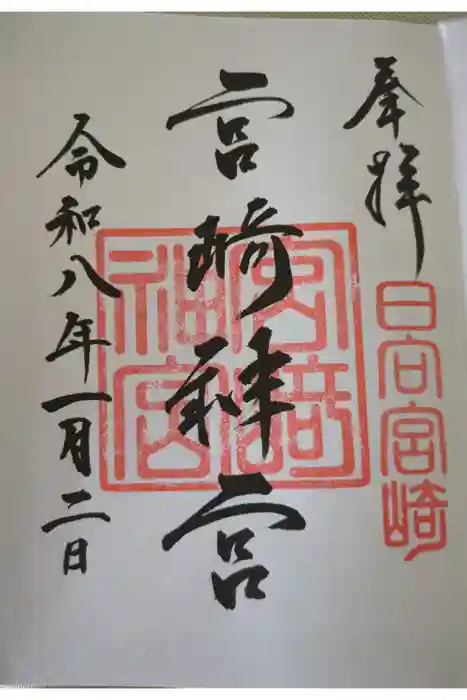 奉拝
日向宮崎
宮崎神宮
宮崎
神宮
令和八年一月二日